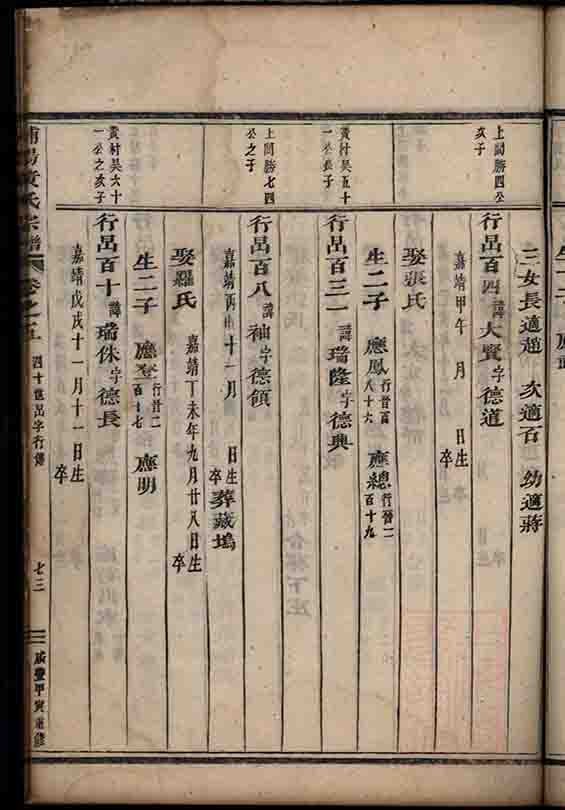 三女長適趙 次適石 幼適蔣
上閣勝四公亥子
行呂百四 諱大賢 字德道
嘉靖甲午 月 日生 卒
娶張氏
生二子 應鳳 行晉百八十六 應總 行晉二百十九
黃村吳五十一公長子
行呂百三一 諱瑞隆 字德興
上閣勝七四公之子
行呂百八 諱袖 字德領
嘉靖丙申十一月 日生 卒 葬藏塢
娶羅氏 嘉靖丁未年九月廿八日生 卒
生二子 應登 行晉二百十七 應明
黃村吳六十一公之亥子
行呂百十 諱瑞休 字德長
嘉靖戊戌十一月十一日生 卒
氏宗譜 卷之五 四十世呂字行傳 七三 咸豐甲寅重修